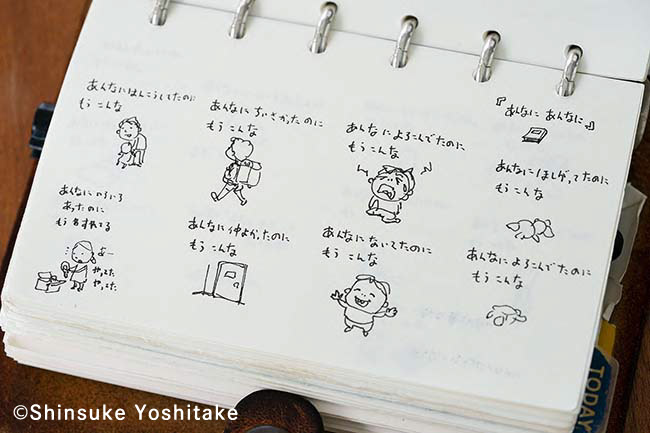 『あんなに あんなに』
あんなに ほしがってたのに
もう こんな
あんなに よろこんでたのに
もう こんな
あんなに よろこんでたのに
もう こんな
あんなに ないてたのに
もう こんな
あんなに ちいさかったのに
もう こんな
あんなに 仲よかったのに
もう こんな
あんなに はんこうしてたのに
もう こんな
あんなに いろいろ
あったのに
もう わすれてる
あー
やってた
やってた
TODAY
©Shinsuke Yoshitake